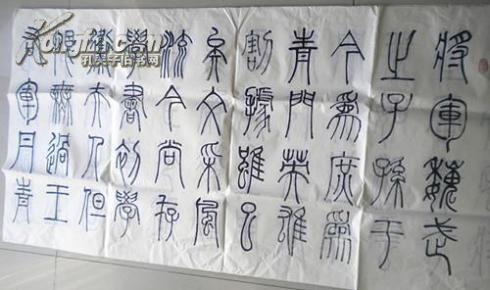 將軍魏武
之子孫于
今為庶為
青門英雄
割據雖已
矣文采風
流今尚存
學書初學
衛夫人但
恨無過王
右軍丹青
孔夫子旧书网